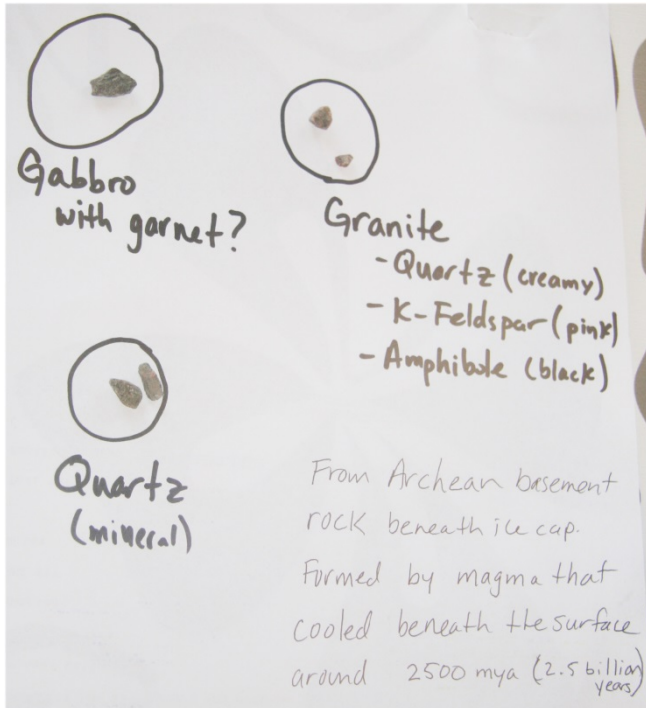 Gabbro
with garnet?
Granite
- Quartz (creamy)
- K-Feldspar (pink)
- Amphibole (black)
Quartz
(mineral)
From Archean basement
rock beneath ice cap.
Formed by magma that
cooled beneath the surface
around 2500 mya (2.5 billion
years)